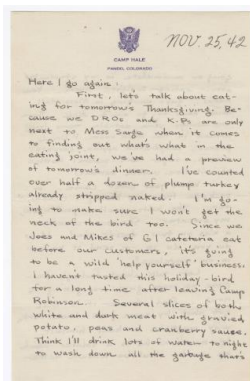 NOV. 25, 42
CAMP HALE
PANDO, COLORADO
Here I go again:
First, let's talk about eat-
ing for tomorrow's Thanksgiving. Be-
cause we DROs and K.Ps are only
next to Mess Sarge when it comes
to finding out what's what in the
eating joint, we've had a preview
of tomorrow's dinner. I've counted
over half a dozen of plump turkey
already stripped naked. I'm go-
ing to make sure I won't get the
neck of the bird too. Since we
Joes and Mikes of GI cafeteria eat
before our customers, it's going
to be a wild 'help yourself' business.
I havent tasted this holiday-bird
for a long time after leaving Camp
Robinson. Several slices of both
white and dark meat with gravied
potato, peas and cranberry sauce.
Think I'll drink lots of water to night
to wash down all the garbage that's